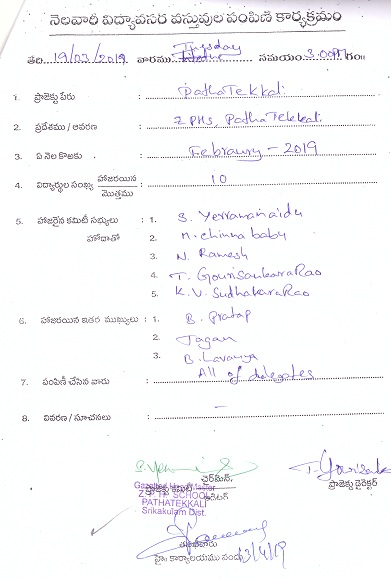 నెలవారీ విద్యావసర వస్తువుల పంపిణీ కార్యక్రమం
తేది. 19/03/2019 వారము Tuesday సమయం: 3.00PM గం॥
1. ప్రాజెక్టు పేరు : PathaTekkali
2. ప్రదేశము / ఆవరణ : Z PHS. PathaTekkali
3. ఏ నెల కొఱకు : Febraury - 2019
4. విద్యార్థుల సంఖ్య హాజరయిన / మొత్తము : 10
5. హాజరైన కమిటీ సభ్యులు : 1. S. Yerramanaidu
హోదాతో 2. M. chinna baby
3. N. Ramesh
4. T. GouriSankaraRao
5. K.V. SudhakaraRao
6. హాజరయిన ఇతర ముఖ్యులు : 1. B. Pratap
2. Jagan
3. B. Lavanya
7. పంపిణీ చేసిన వారు : All of delegates
8. వివరణ / సూచనలు : -
ఛైర్మన్, T. Gourisanka
ప్రాజెక్టు కమిటీ ప్రాజెక్టు డైరెక్టర్
Gazetted Head Master
Z.P.H. SCHOOL
PATHATEKKALI
Srikakulam Dist.
హై॥ కార్యాలయము నందు 3/4/19